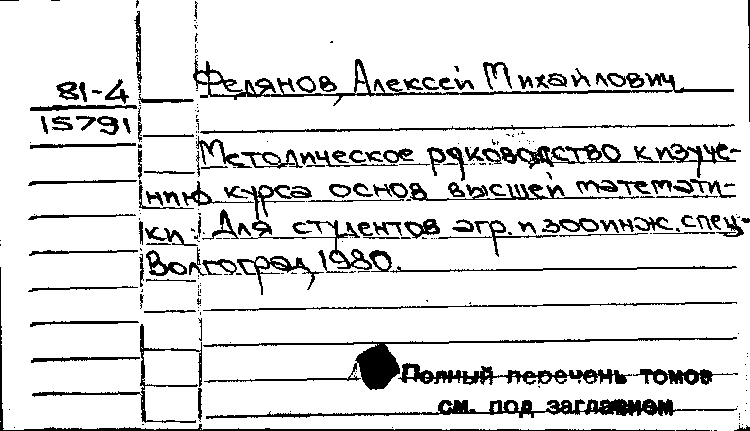 81-4
15791
Фелянов, Алексей Михайлович
Методическое руководство к изуче-
нию курса основ высшей математи-
ки. Для студентов агр. и зооинж. спец-
Волгоград, 1980.
Полный перечень томов
см. под заглавием